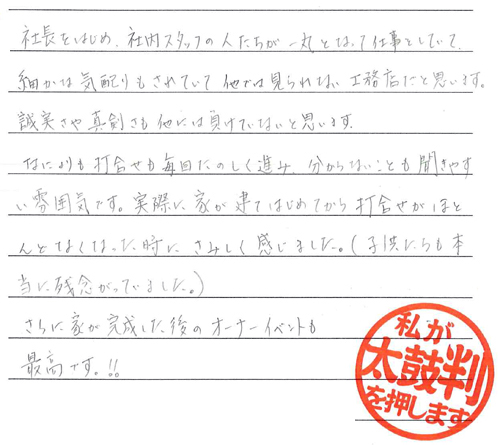 社長をはじめ、社内スタッフの人たちが一丸となって仕事をしていて、
細かな気配りもされていて他では見られない工務店だと思います。
誠実さや真剣さも他には負けていないと思います。
なにより打合せも毎回たのしく進み、分からないことも聞きやす
い雰囲気です。実際に家が建てはじめてから打合せがほと
んどなくなった時にさみしく感じました。(子供たちも本
当に残念がっていました。)
さらに家が完成した後のオーナーイベントも
最高です。!!
私が
太鼓判
を押します